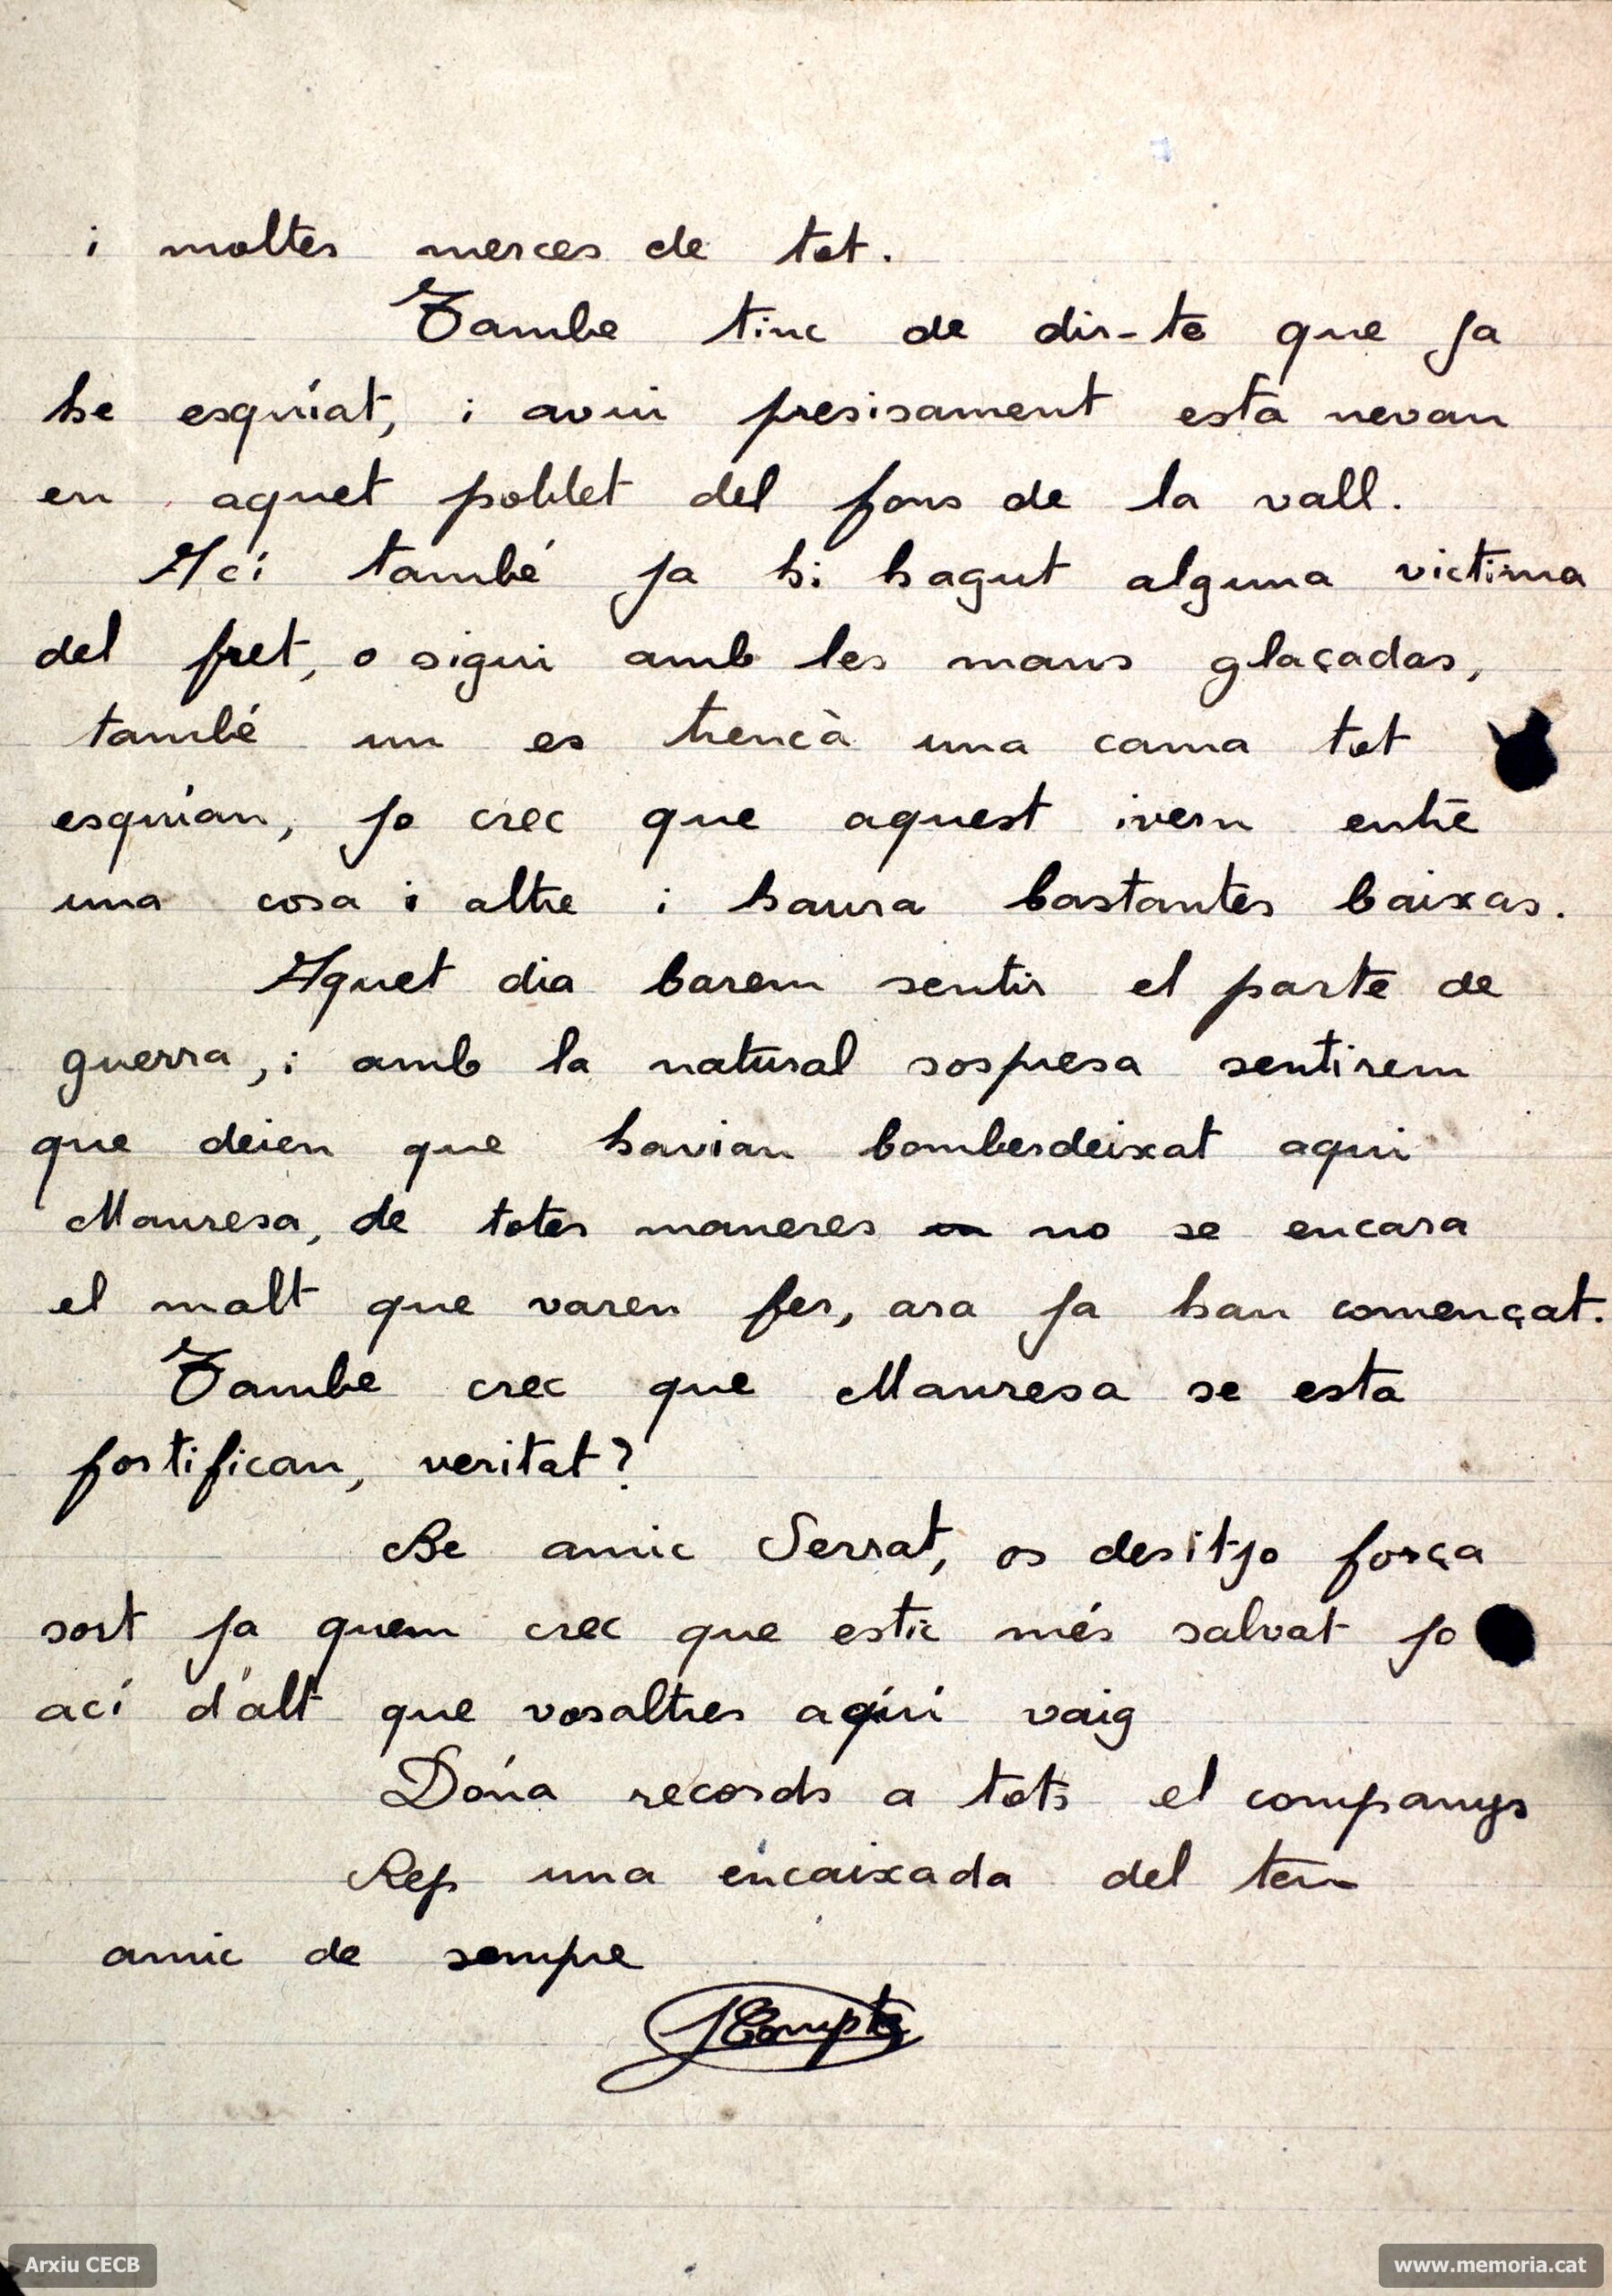 i moltes merces de tot.
Tambe tinc de dir-te que ja
he esquiat, i avui presisament esta nevan
en aquet poblet del fons de la vall.
Ací també ja hi hagut alguna victima
del fret, o sigui amb les mans glaçadas,
també un es trencà una cama tot
esquian, jo crec que aquest ivern entre
una cosa i altre i haura bastantes baixas.
Aquet dia barem sentir el parte de
guerra, i amb la natural sospresa sentirem
que deien que havian bomberdeixat aqui
Manresa, de totes maneres no se encara
el malt que varen fer, ara ja han començat.
Tambe crec que Manresa se esta
fortifican, veritat?
Be amic Serrat, os desitjo força
sort ja quem crec que estic més salvat jo
ací d'alt que vosaltres aquí vaig
Dóna records a tots el companys
Rep una encaixada del teu
amic de sempre
JCompte
Arxiu CECB
www.memoria.cat